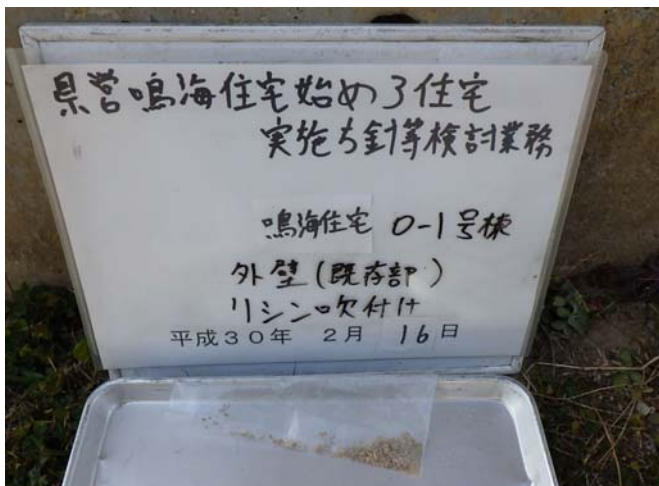 県営鳴海住宅始め3住宅
実施方針等検討業務
鳴海住宅 0-1号棟
外壁(既存部)
リシン吹付け
平成30年 2月 16日